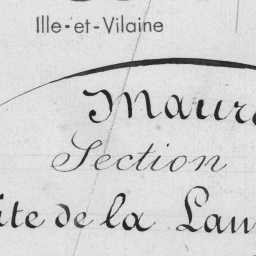 Ille-et-Vilaine
Maur
Section
ite de la Lan